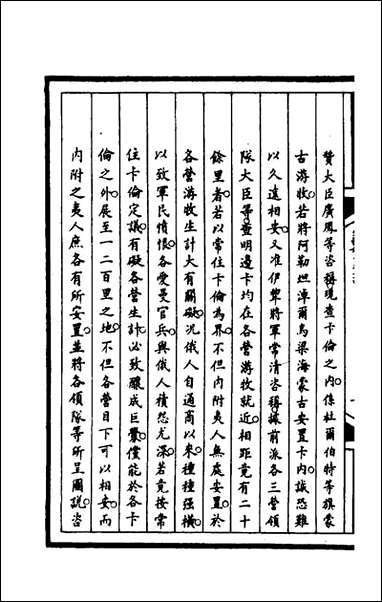 贊大臣廣鳳等咨稱現查卡倫之內係杜爾伯特等旗蒙
古游牧若將阿勒坦淖爾烏梁海蒙古安置卡內誠恐難
以久遠相安又准伊犂將軍常清咨稱據前派各三營領
隊大臣等查明邊卡均在各營游牧就近相距竟有二十
餘里者若以常住卡倫為界不但內附夷人無處安置於
各營游牧生計大有關礙況俄人自通商以來種種强橫
以致軍民憤恨各愛曼官兵與俄人積怨尤深若竟按常
住卡倫定議有礙各營生計必致釀成巨釁僅能於各卡
倫之外展至一二百里之地不但各營目下可以相安而
內附之夷人庶各有所安置並將各領隊等所呈圖說咨